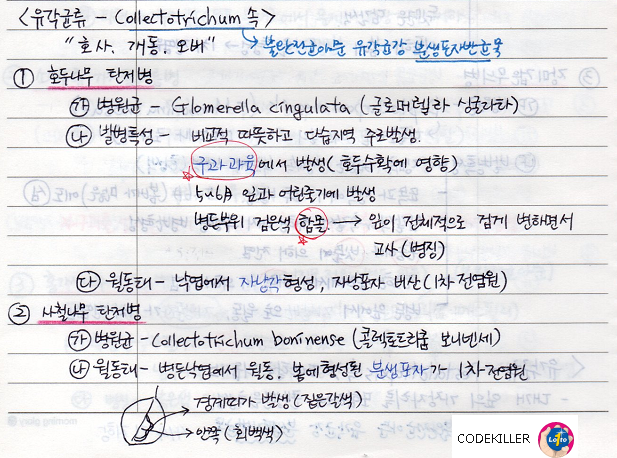 <유각균류 - Collectotrichum 속>
"호사, 개동, 오버" → 불완전균아문 유각균강 분생포자반균목
① 호두나무 탄저병
㉮ 병원균 - Glomerella cingulata (글로머렐라 싱굴라타)
㉯ 발병특성 - 비교적 따뜻하고 다습지역 주로발생.
☆ 구과 과육에서 발생(호두수확에 영향)
5~6月 잎과 어린줄기에 발생
병든부위 검은색 함몰. → 잎이 전체적으로 검게 변하면서
☆ 고사 (병징)
㉰ 월동태 - 낙엽에서 자낭각 형성, 자낭포자 비산(1차 전염원)
② 사철나무 탄저병
㉮ 병원균 - Collectotrichum boninense (콜레토트리쿰 보니넨세)
㉯ 월동태 - 병든낙엽에서 월동. 봄에 형성된 분생포자가 1차전염원
→ 경계띠가 발생 (짙은갈색)
→ 안쪽 (회백색)
CODEKILLER Lotto